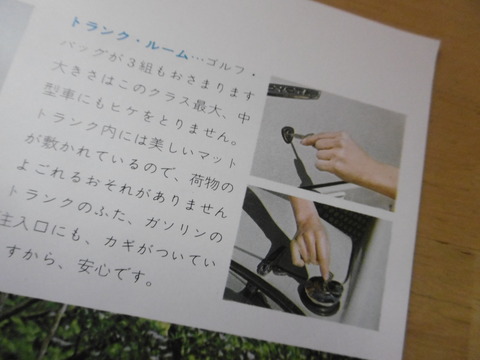 トランク・ルーム…ゴルフ・
バッグが3組もおさまります
大きさはこのクラス最大、中
型車にもヒケをとりません。
トランク内には美しいマット
が敷かれているので、荷物の
よごれるおそれがありません
トランクのふた、ガソリンの
注入口にも、カギがついてい
すから、安心です。